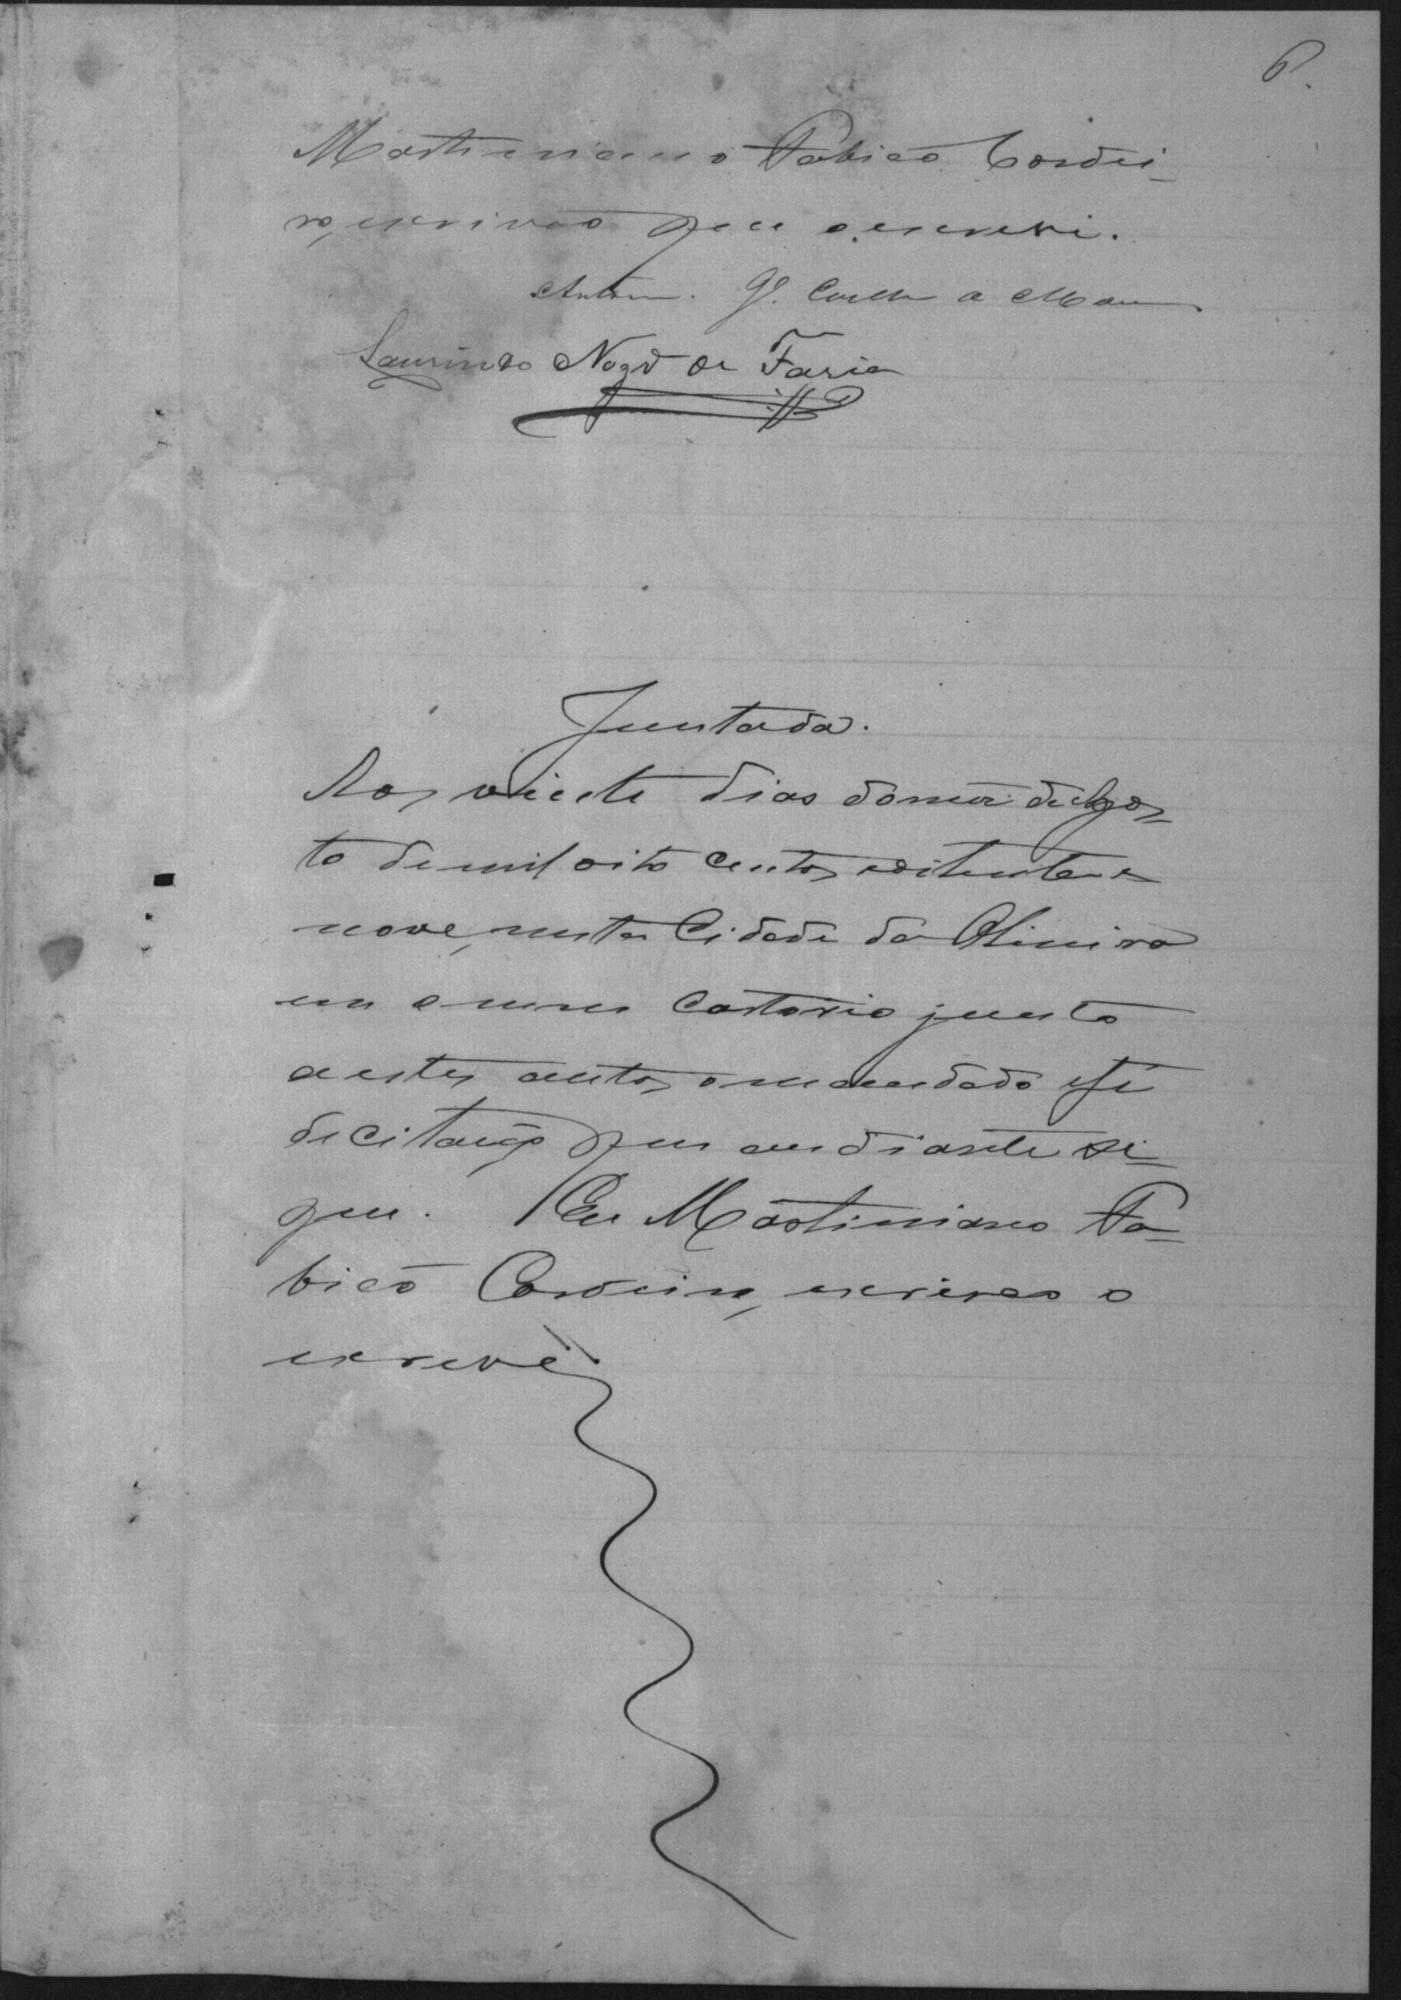 6
Martiniano Fabião Cordei-
ro, escrivão que o escrevi.
Coelho
Laurindo Nogr.ª de Faria
Juntada.
Aos vinte dias do mez de Agos-
to de mil oito centos e oitenta e
nove, nesta Cidade da Oliveira
em o meu Cartorio junto
a estes autos o mandado e fé
de citação que em diante se-
gue. Eu Martiniano Fa-
bião Cordeiro, escrivão o
escrevi.